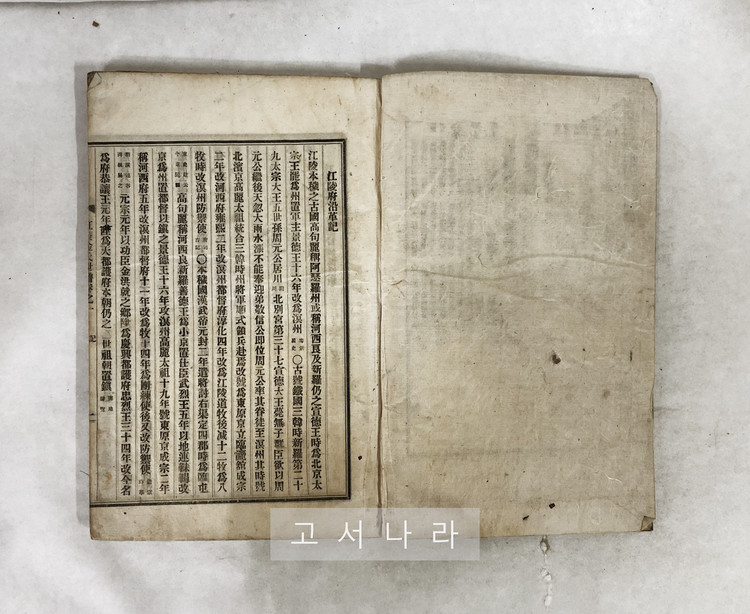 江陵府沿革記
江陵本穢之古國高句麗稱阿瑟羅州或稱河西良及新羅仍之宣德王時爲北京太
宗王罷爲州置軍主景德王十六年改爲溟州 ○古號鐵國三韓時新羅第二十
九太宗大王五世孫周元公居川 北別宮第三十七宣德大王薨無子群臣欲以周
元公繼後天忽大雨水漲不能奉迎弟敬信公卽位周元公率其眷徒至溟州其時號
北濱京高麗太祖統合三韓時州將軍順式領兵赴焉改號爲東原京立臨瀛館成宗
二年改河西府雍熙三年改溟州都督府淳化四年改爲江陵道牧後减十二牧爲八
牧時改溟州防禦使 ○本穢國漢武帝元封二年遣將討右渠定四郡時爲臨屯
高句麗稱河西良新羅善德王爲小京置仕臣武烈王五年以地連靺鞨改
京爲州置都督以鎭之景德王十六年改溟州高麗太祖十九年號東原京成宗二年
稱河西府五年改溟州都督府十一年改爲牧十四年爲團練使後又改防禦使
元宗元年以功臣金洪就之鄕陞爲慶興都護府忠烈王三十四年改今名
爲府恭讓王元年陞爲大都護府本朝仍之 世祖朝置鎭
고서나라